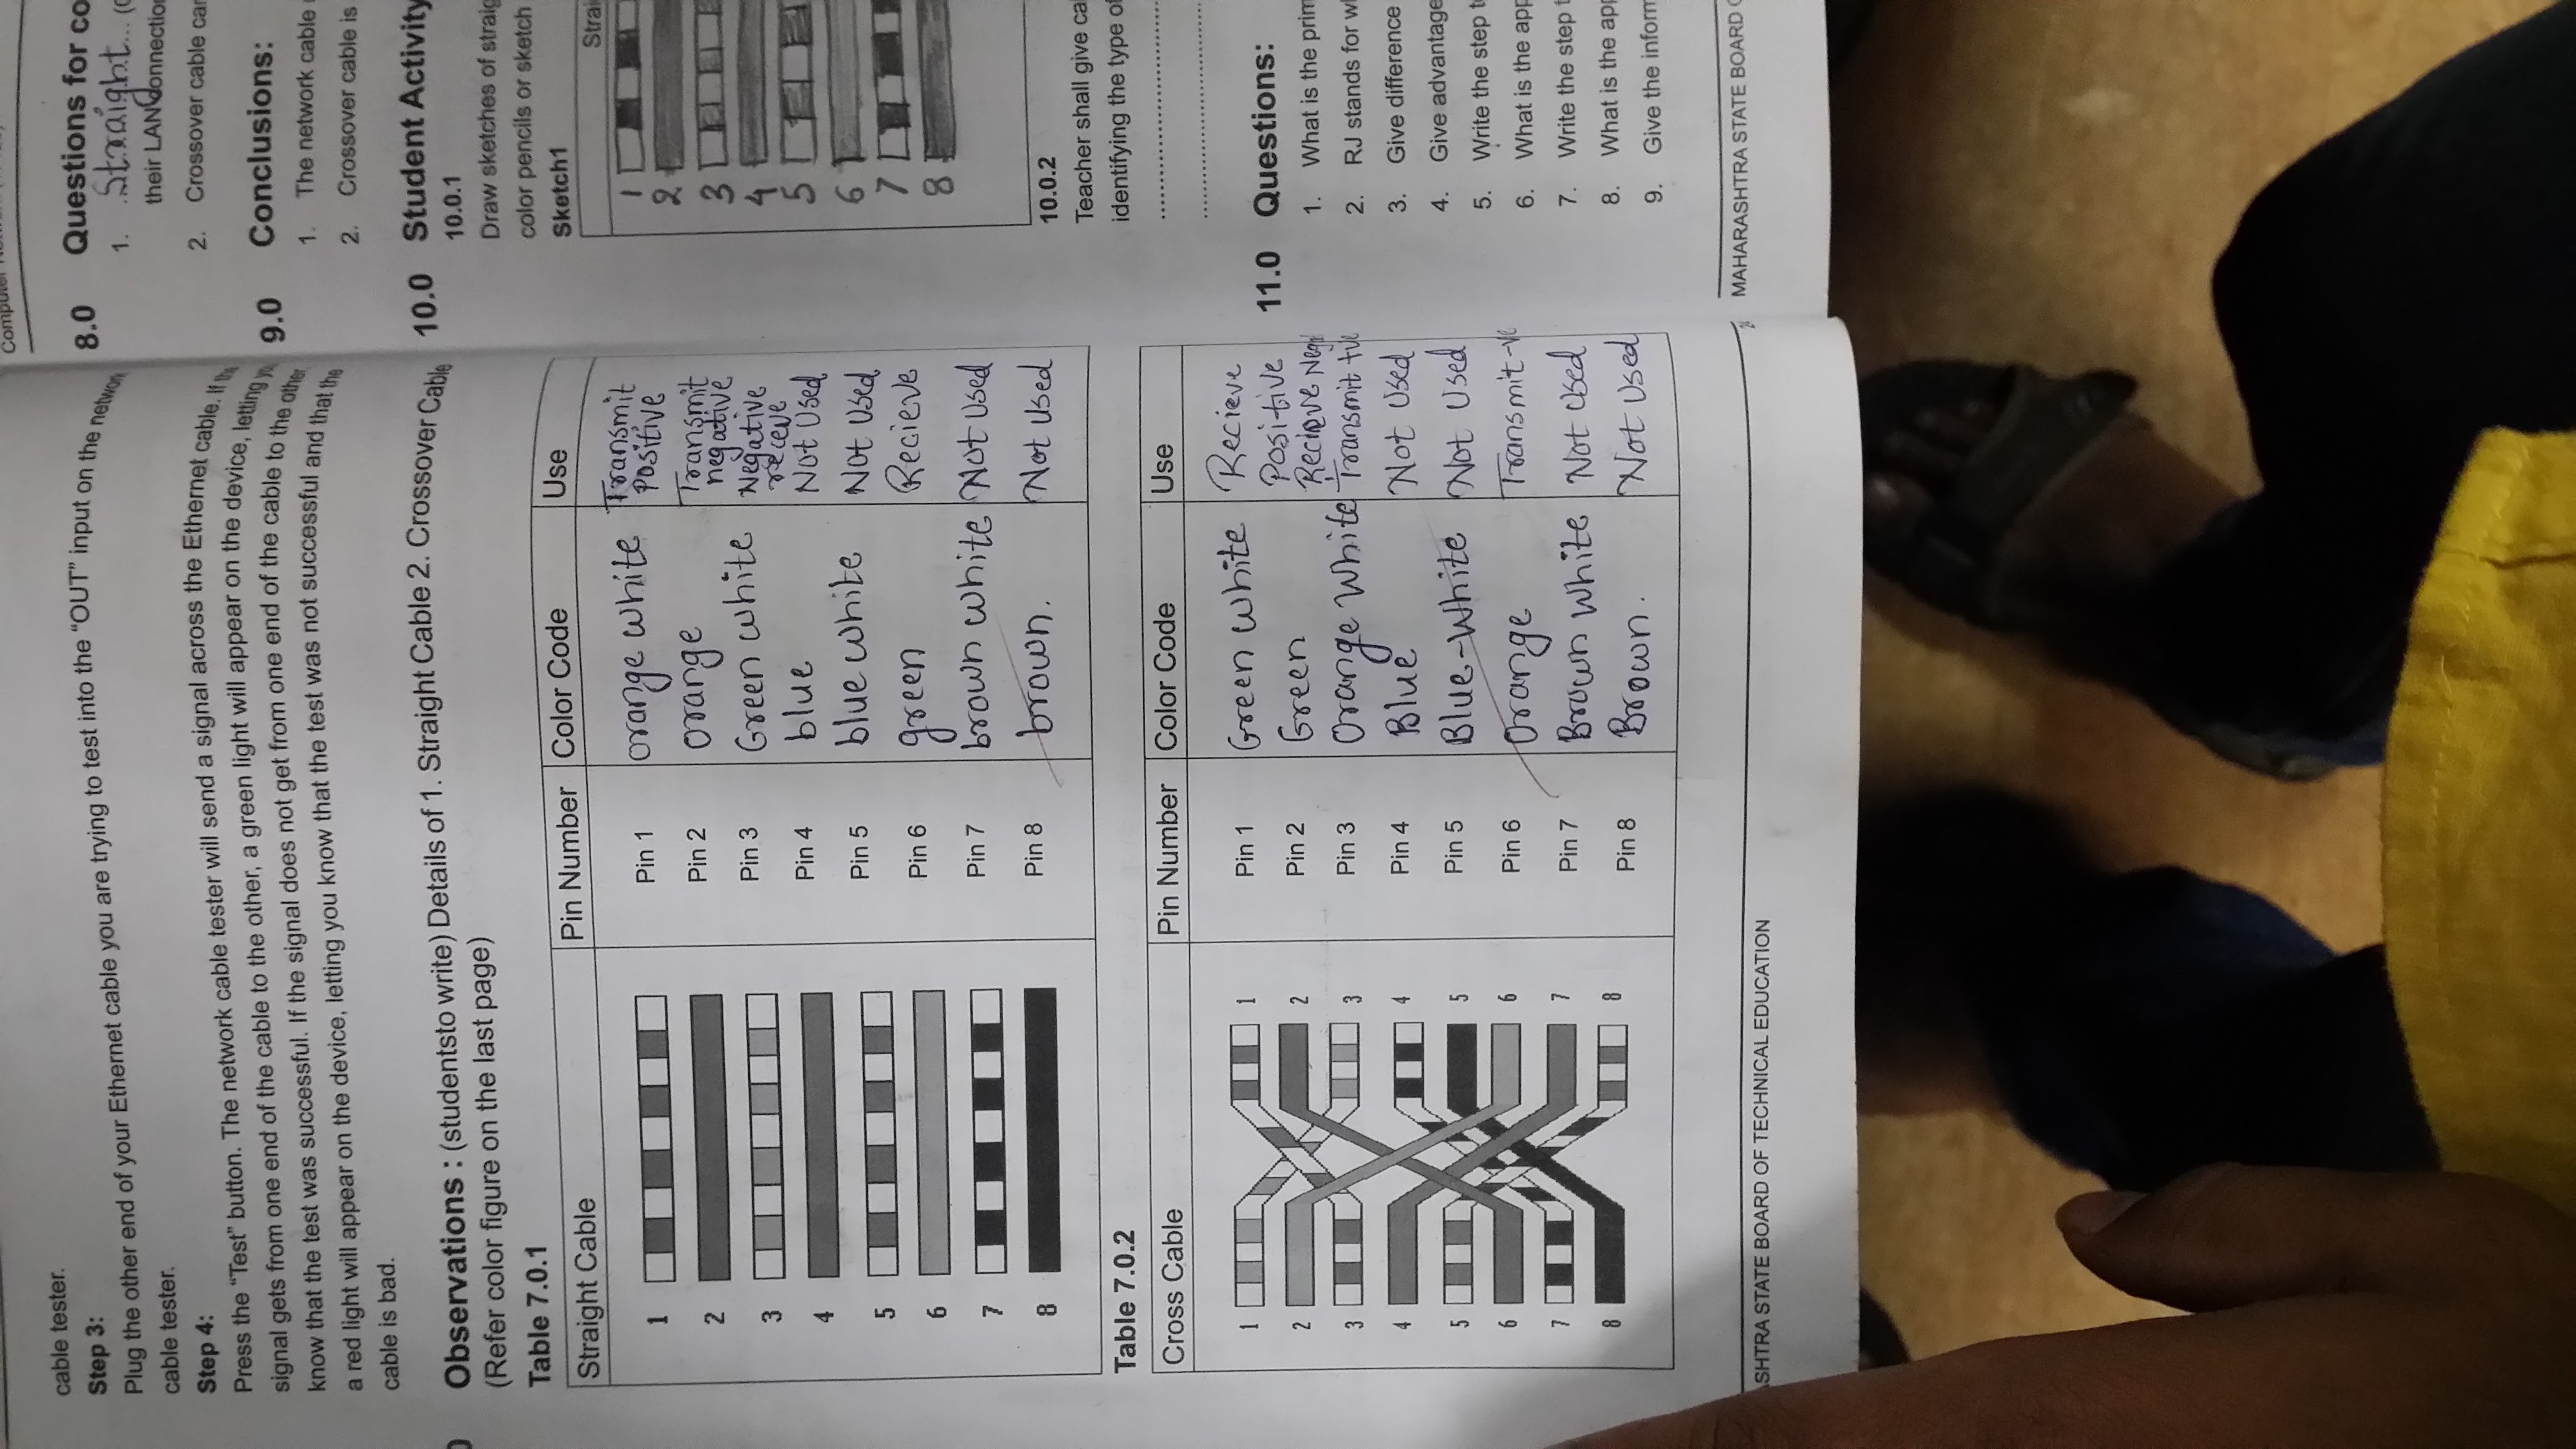 cable tester.
Step 3:
Plug the other end of your Ethernet cable you are trying to test into the "OUT" input on the network
cable tester.
Step 4:
Press the "Test" button. The network cable tester will send a signal across the Ethernet cable. If the
signal gets from one end of the cable to the other, a green light will appear on the device, letting
know that the test was successful. If the signal does not get from one end of the cable to the other
a red light will appear on the device, letting you know that the test was not successful and that the
cable is bad.
Observations : (studentsto write) Details of 1. Straight Cable 2. Crossover Cable
(Refer color figure on the last page)
Table 7.0.1
Straight Cable Pin Number Color Code Use
1 Pin 1 orange white Transmit Positive
2 Pin 2 orange Transmit negative
3 Pin 3 Green white Negative receve
4 Pin 4 blue Not Used
5 Pin 5 blue white Not Used
6 Pin 6 green Recieve
7 Pin 7 brown white Not Used
8 Pin 8 brown. Not Used
Table 7.0.2
Cross Cable Pin Number Color Code Use
1 1 Pin 1 Green white Recieve Positive
2 2 Pin 2 Green Recieve Neg
3 3 Pin 3 Orange white Transmit +ve
4 4 Pin 4 Blue Not Used
5 5 Pin 5 Blue-White Not Used
6 6 Pin 6 Orange Transmit -ve
7 7 Pin 7 Brown white Not Used
8 8 Pin 8 Brown. Not Used
SHTRA STATE BOARD OF TECHNICAL EDUCATION
8.0 Questions for co
1. Straight
their LAN connectio
2. Crossover cable can
9.0 Conclusions:
1. The network cable
2. Crossover cable is
10.0 Student Activity
10.0.1
Draw sketches of straig
color pencils or sketch
Sketch1
Strai
1
2
3
4
5
6
7
8
10.0.2
Teacher shall give ca
identifying the type of
11.0 Questions:
1. What is the prim
2. RJ stands for w
3. Give difference
4. Give advantage
5. Write the step t
6. What is the app
7. Write the step t
8. What is the app
9. Give the inform
MAHARASHTRA STATE BOARD O